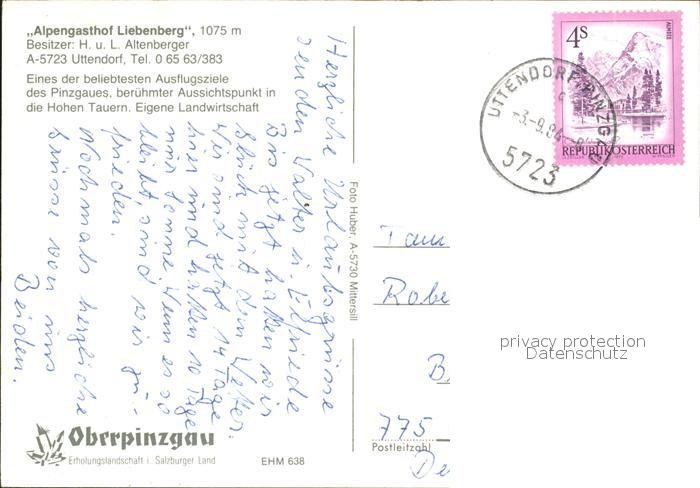 „Alpengasthof Liebenberg", 1075 m
Besitzer: H. u. L. Altenberger
A-5723 Uttendorf, Tel. 0 65 63/383
Eines der beliebtesten Ausflugsziele
des Pinzgaues, berühmter Aussichtspunkt in
die Hohen Tauern. Eigene Landwirtschaft
Herzliche Urlaubsgrüsse
senden Walter u. Elfriede
Bis jetzt hatten wir
Glück mit dem Wetter.
Wir sind jetzt 14 Tage
hier und hatten 10 Tage
nur Sonne wenn es so
bleibt sind wir zu-
frieden.
Nochmals herzliche
Grüsse von uns
Beiden.
Foto Huber, A-5730 Mittersill
4S
ALMSEE
REPUBLIK ÖSTERREICH
UTTENDORF, PINZGAU
-3.-9.84-
5723
Tam
Robe
B
775
Postleitzahl
De
privacy protection
Datenschutz
Oberpinzgau
Erholungslandschaft i. Salzburger Land
EHM 638